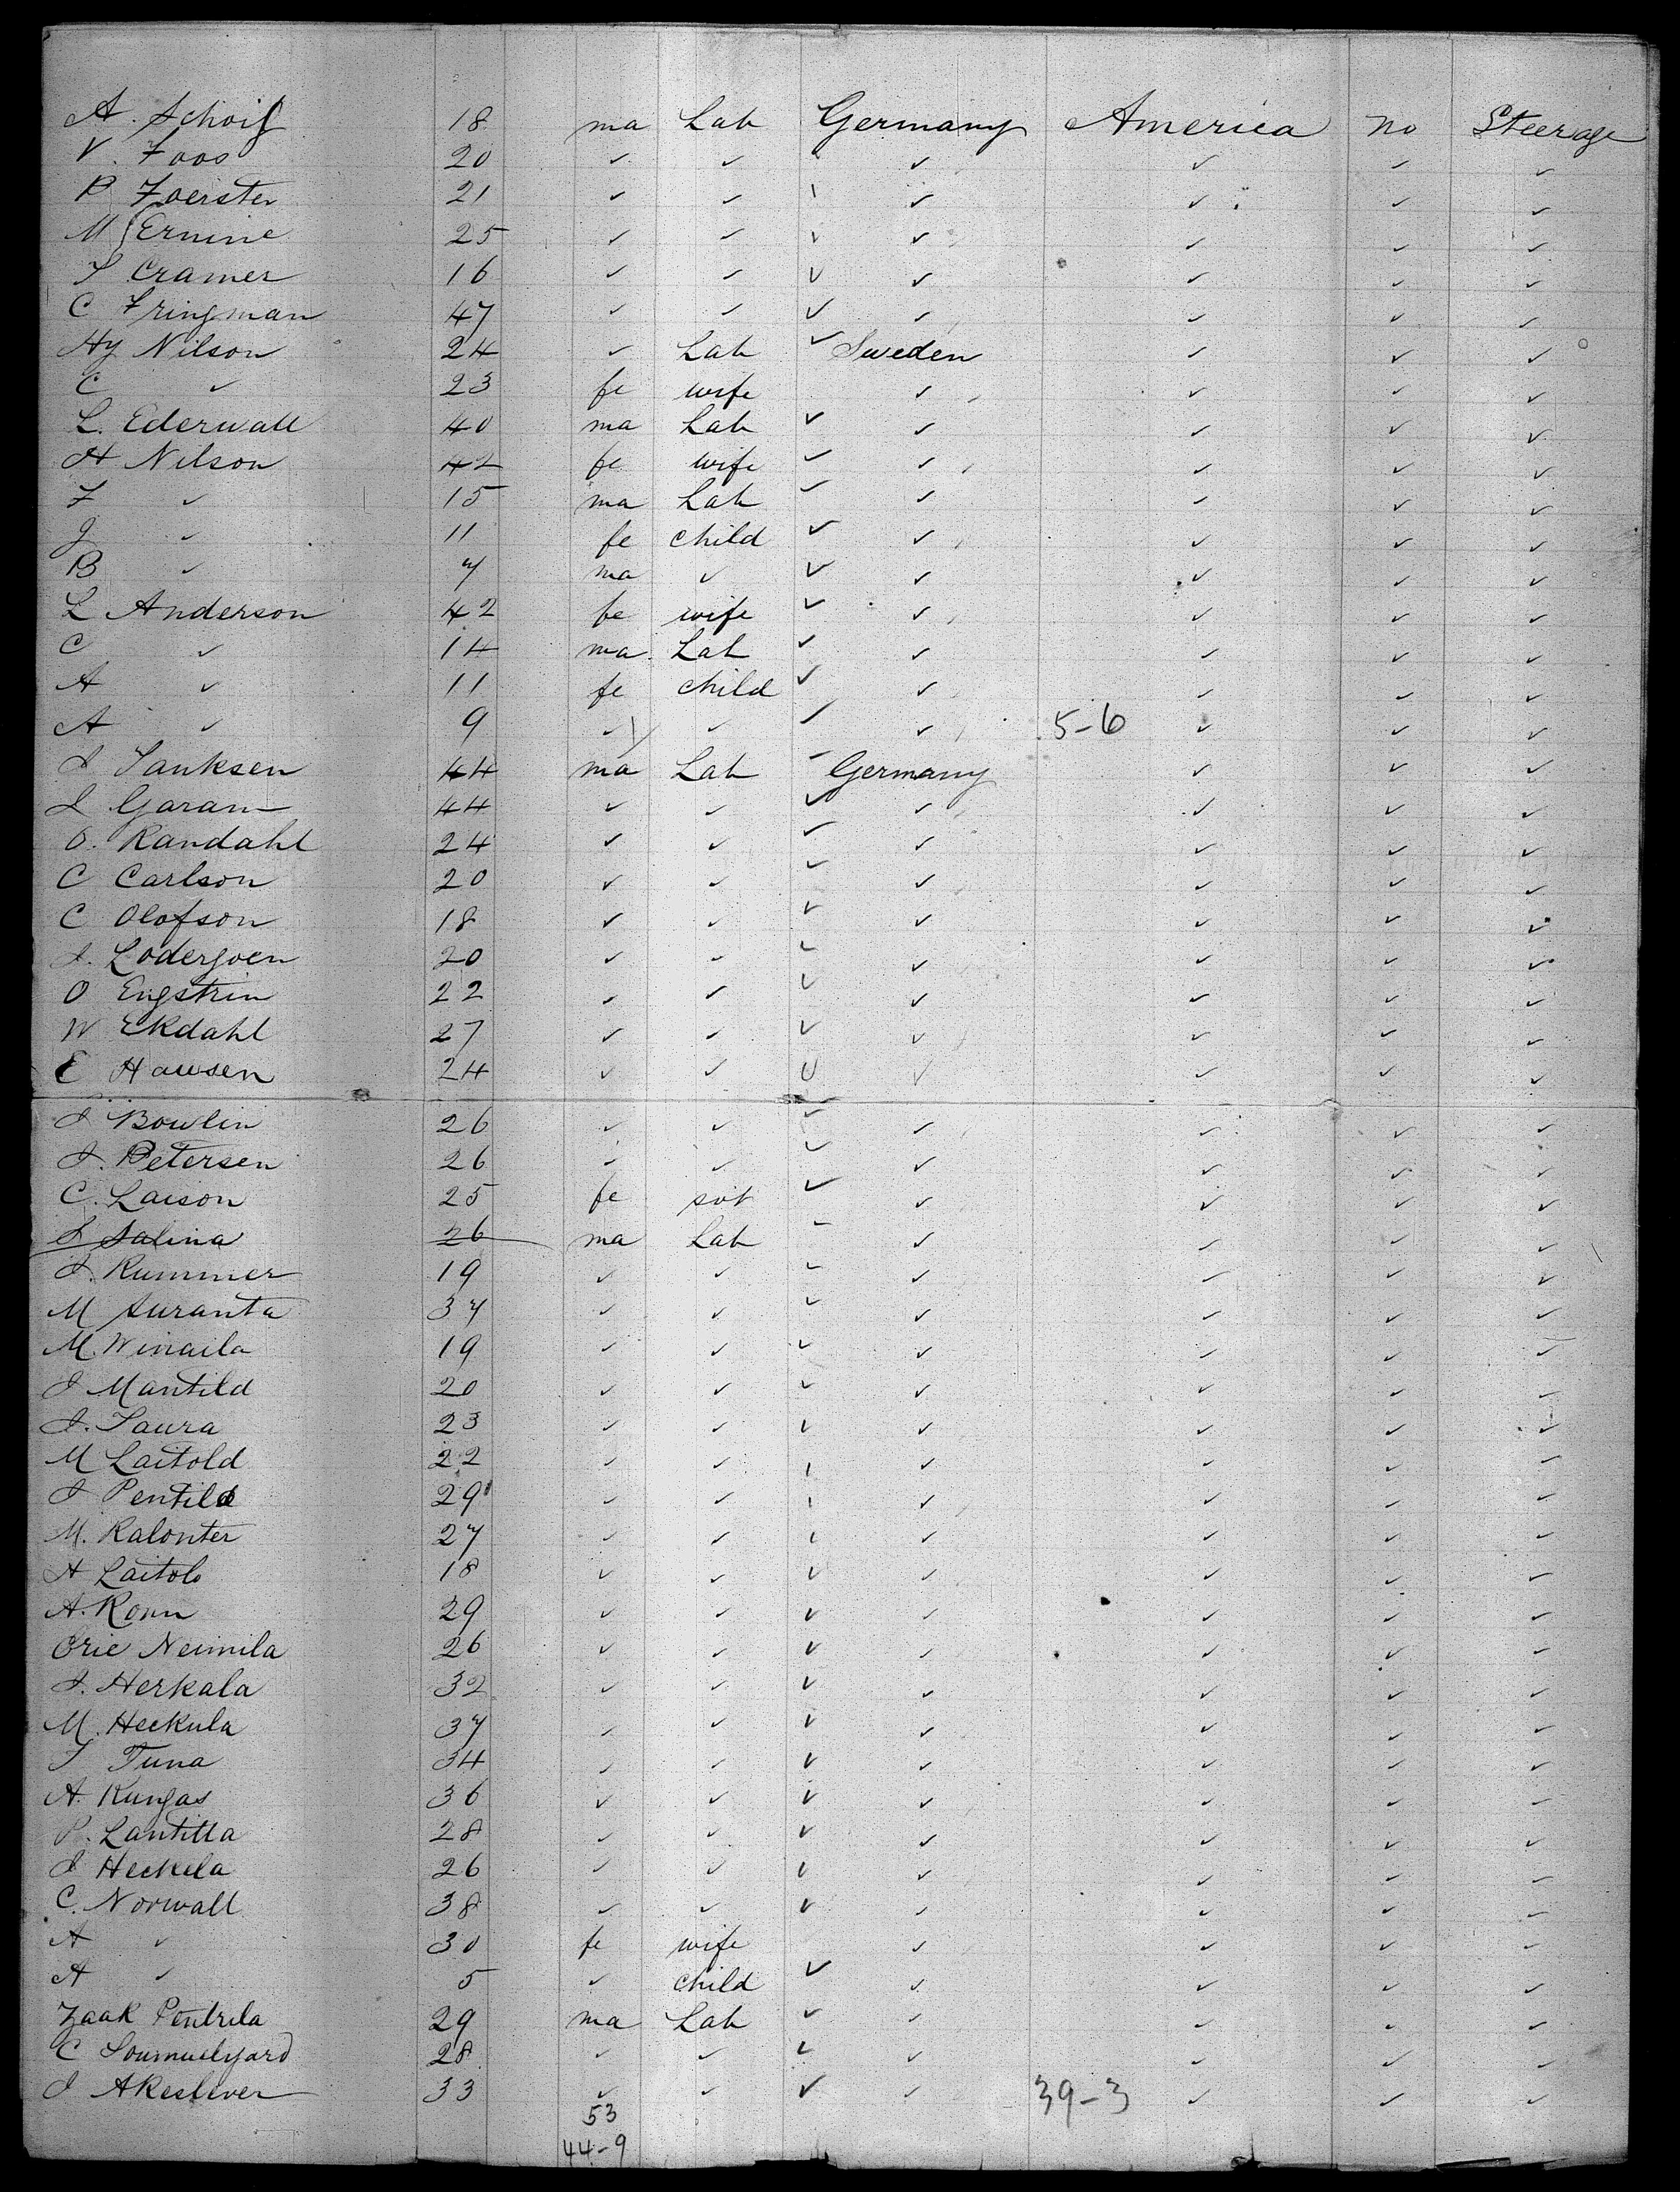 A. Schoif 18 ma Lab Germany America no Steerage
V. Foos 20 ✓ ✓ ✓ ✓ ✓ ✓ ✓
B Foerster 21 ✓ ✓ ✓ ✓ ✓ ✓
M Ernine 25 ✓ ✓ ✓ ✓ ✓ ✓ ✓
S Cramer 16 ✓ ✓ ✓ ✓ ✓ ✓ ✓
C Fringman 47 ✓ ✓ ✓ ✓ ✓ ✓ ✓
Hy Nilson 24 ✓ Lab ✓ Sweden ✓ ✓ ✓
C ✓ 23 fe wife ✓ ✓ ✓ ✓
L. Ederwall 40 ma Lab ✓ ✓ ✓ ✓ ✓
H Nilson 42 fe wife ✓ ✓ ✓ ✓ ✓
F ✓ 15 ma Lab ✓ ✓ ✓ ✓ ✓
J ✓ 11 fe child ✓ ✓ ✓ ✓ ✓
B ✓ 7 ma ✓ ✓ ✓ ✓ ✓ ✓
L Anderson 42 fe wife ✓ ✓ ✓ ✓ ✓
C ✓ 14 ma. Lab ✓ ✓ ✓ ✓ ✓
A ✓ 11 fe child ✓ ✓ ✓ ✓ ✓
A ✓ 9 ✓ ✓ ✓ ✓ 5-6 ✓ ✓ ✓
J Sanksen 44 ma Lab ✓ Germany ✓ ✓ ✓
L Garam 44 ✓ ✓ ✓ ✓ ✓ ✓ ✓
O. Randahl 24 ✓ ✓ ✓ ✓ ✓ ✓ ✓
C Carlson 20 ✓ ✓ ✓ ✓ ✓ ✓ ✓
C Olofson 18 ✓ ✓ ✓ ✓ ✓ ✓ ✓
J. Lodergoen 20 ✓ ✓ ✓ ✓ ✓ ✓ ✓
O Engstrin 22 ✓ ✓ ✓ ✓ ✓ ✓ ✓
W Ekdahl 27 ✓ ✓ ✓ ✓ ✓ ✓ ✓
E Hawsen 24 ✓ ✓ ✓ ✓ ✓ ✓ ✓
J Bowlin 26 ✓ ✓ ✓ ✓ ✓ ✓ ✓
J. Petersen 26 ✓ ✓ ✓ ✓ ✓ ✓ ✓
C. Laison 25 fe svt ✓ ✓ ✓ ✓ ✓
J Salina 26 ma Lab ✓ ✓ ✓ ✓ ✓
J. Rummer 19 ✓ ✓ ✓ ✓ ✓ ✓ ✓
M Auranta 37 ✓ ✓ ✓ ✓ ✓ ✓ ✓
M. Winaila 19 ✓ ✓ ✓ ✓ ✓ ✓ ✓
J Mantild 20 ✓ ✓ ✓ ✓ ✓ ✓ ✓
J. Saura 23 ✓ ✓ ✓ ✓ ✓ ✓ ✓
M Laitold 22 ✓ ✓ ✓ ✓ ✓ ✓ ✓
J Pentild 29 ✓ ✓ ✓ ✓ ✓ ✓ ✓
M. Kalonter 27 ✓ ✓ ✓ ✓ ✓ ✓ ✓
H Laitolo 18 ✓ ✓ ✓ ✓ ✓ ✓ ✓
A. Ronn 29 ✓ ✓ ✓ ✓ ✓ ✓ ✓
Eric Neimila 26 ✓ ✓ ✓ ✓ ✓ ✓ ✓
J. Herkala 32 ✓ ✓ ✓ ✓ ✓ ✓ ✓
M. Heckula 37 ✓ ✓ ✓ ✓ ✓ ✓ ✓
S Tuna 34 ✓ ✓ ✓ ✓ ✓ ✓ ✓
A. Kungas 36 ✓ ✓ ✓ ✓ ✓ ✓ ✓
P. Lantilla 28 ✓ ✓ ✓ ✓ ✓ ✓ ✓
J Heckela 26 ✓ ✓ ✓ ✓ ✓ ✓ ✓
C. Norwall 38 ✓ ✓ ✓ ✓ ✓ ✓ ✓
A ✓ 30 fe wife ✓ ✓ ✓ ✓
A ✓ 5 ✓ child ✓ ✓ ✓ ✓ ✓
Zaak Pentrila 29 ma Lab ✓ ✓ ✓ ✓ ✓
C Soumuelyard 28 ✓ ✓ ✓ ✓ ✓ ✓ ✓
J Akeslever 33 ✓ ✓ ✓ ✓ 39-3 ✓ ✓ ✓
53
44-9